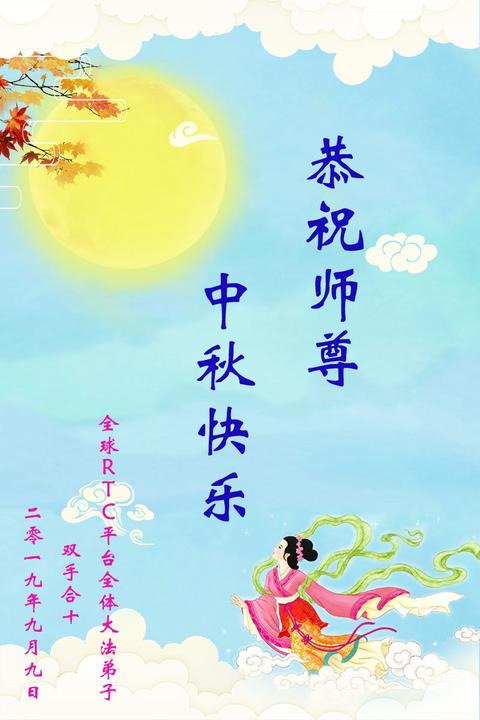 恭祝师尊
中秋快乐
全球RTC平台全体大法弟子
双手合十
二零一九年九月九日